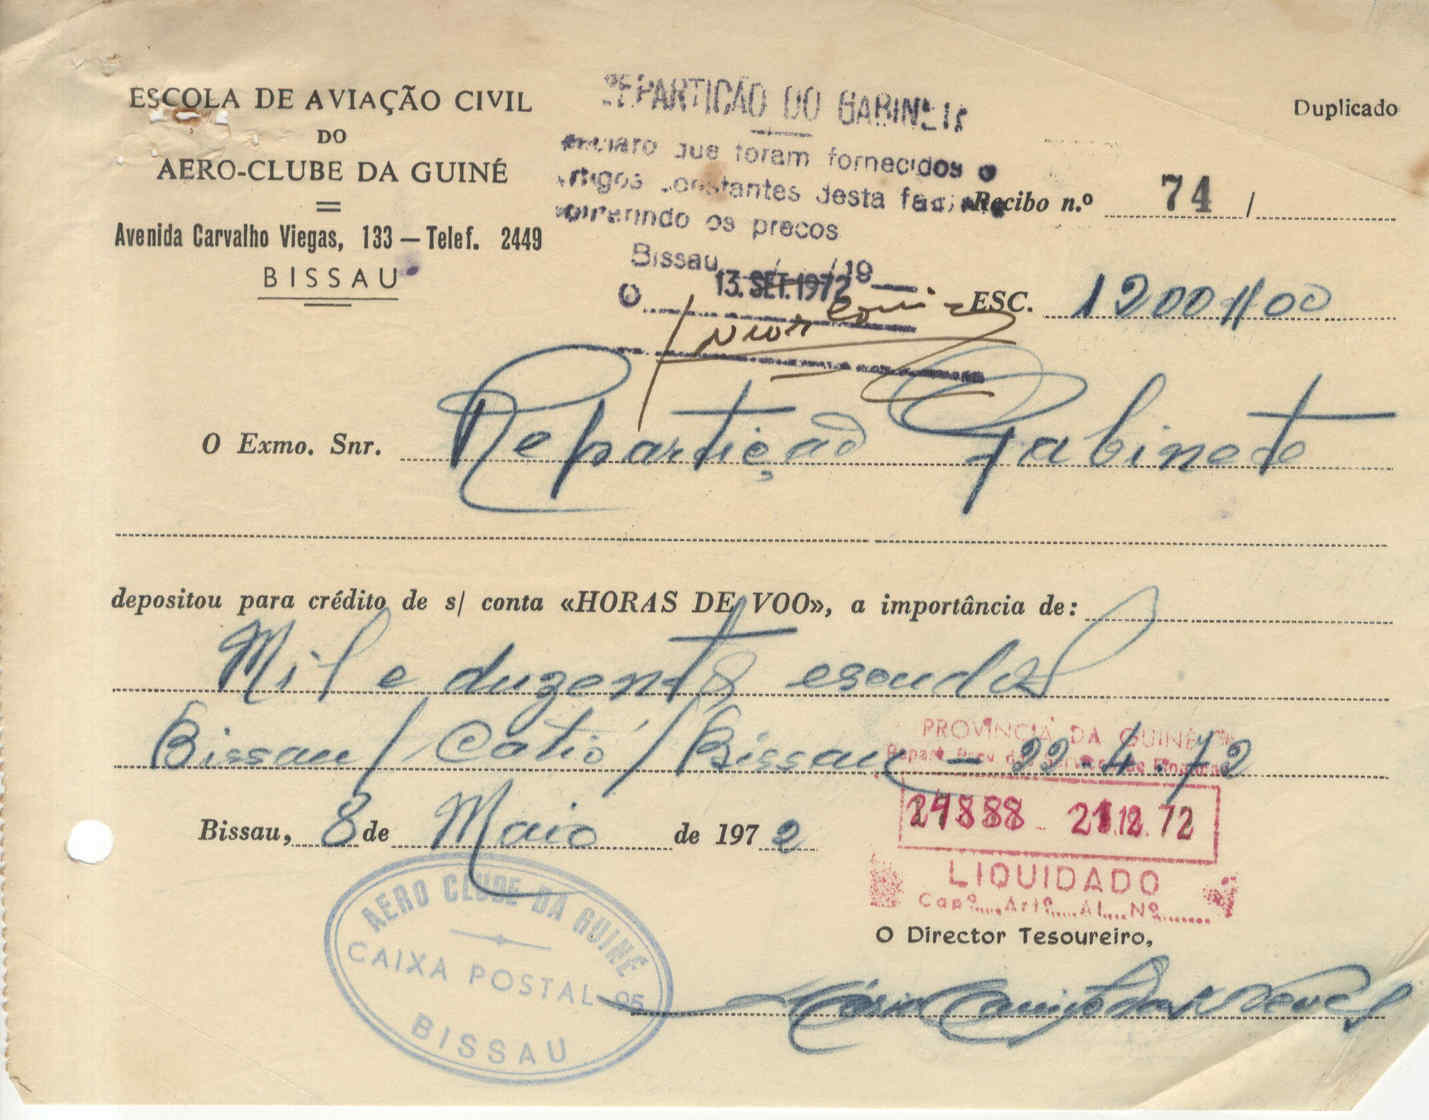 ESCOLA DE AVIAÇÃO CIVIL
DO
AERO-CLUBE DA GUINÉ
Avenida Carvalho Viegas, 133 — Telef. 2449
BISSAU
REPARTICÃO DO GABINETE
que foram fornecidos o
artigos constantes desta
os preços
Bissau / /19
13. SET. 1972
O
Duplicado
Recibo n.º 74 /
ESC. 1200$00
O Exmo. Snr. Repartição Gabinete
depositou para crédito de s/ conta «HORAS DE VOO», a importância de:
Mil e duzentos escudos
Bissau / Catió / Bissau — 22-4-72
PROVÍNCIA DA GUINÉ
Bissau, 8 de Maio de 1972
21.12.72
LIQUIDADO
Capº. Artº. Al. Nº.
AERO CLUBE DA GUINÉ
CAIXA POSTAL 95
BISSAU
O Director Tesoureiro,